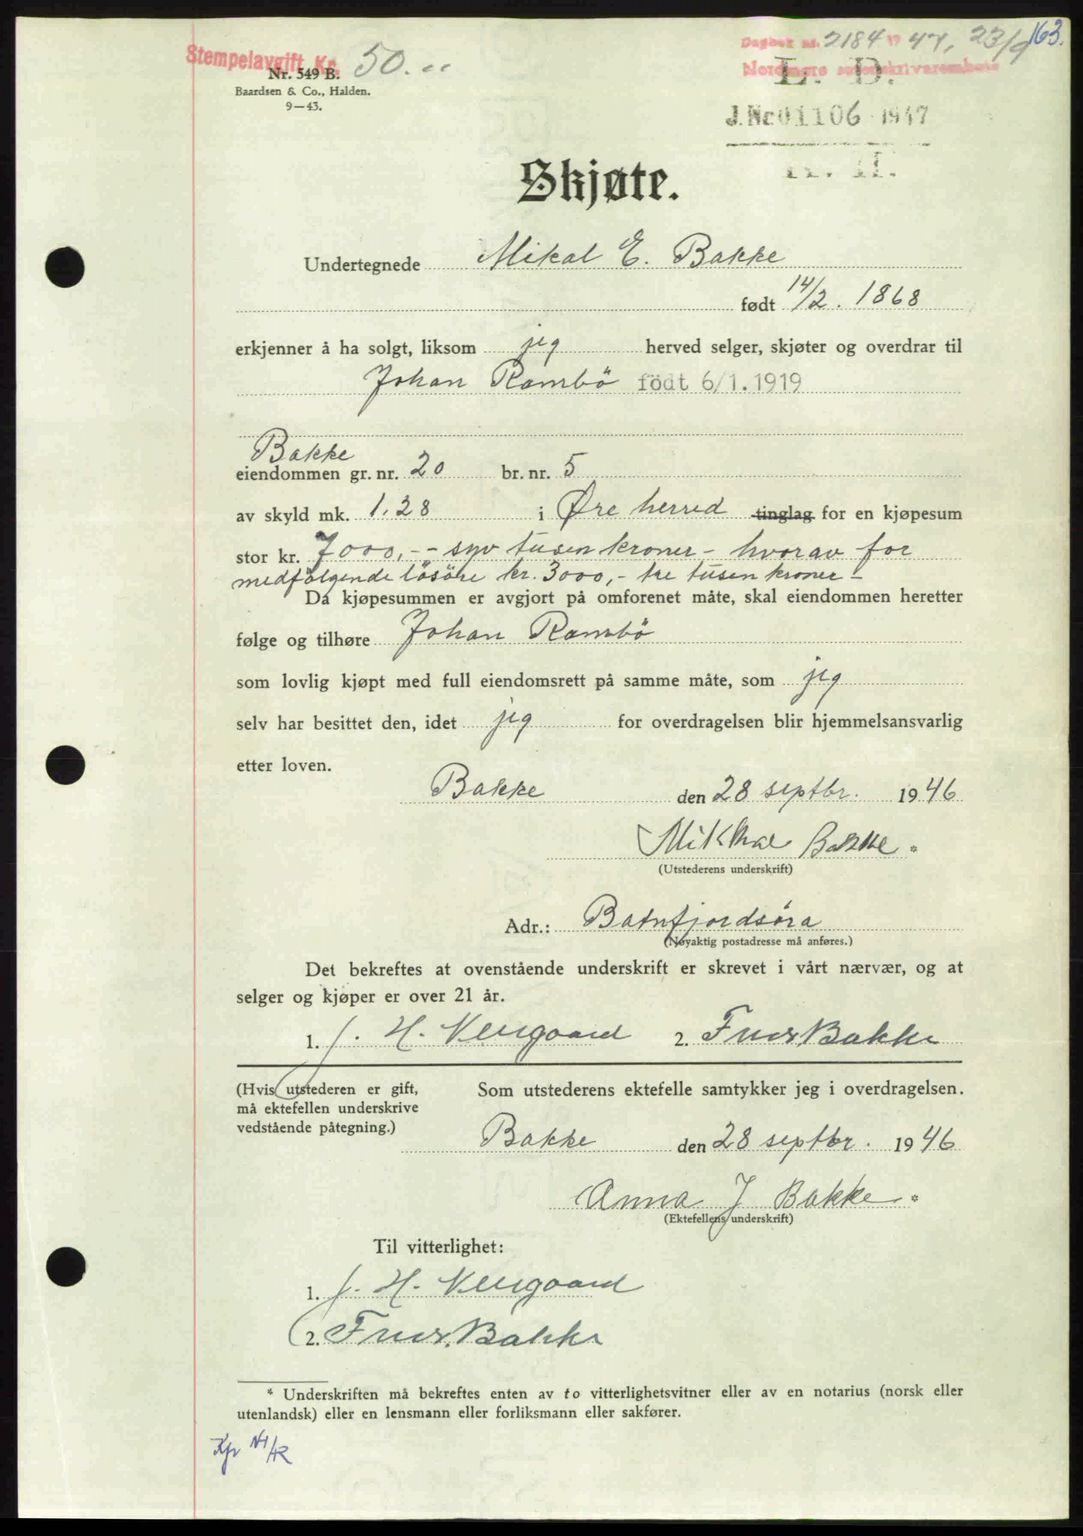 Stempelavgift Kr. 50. "
Dagbok nr. 2184 1947, 23/9 163.
Nordmøre sorenskriverembete
Nr. 549 B.
Baardsen & Co., Halden.
9—43.
L. D.
J.Nr 01106 1947
Skjøte.
Undertegnede Mikal E. Bakke
født 14/2. 1868
erkjenner å ha solgt, liksom jeg herved selger, skjøter og overdrar til
Johan Rambö födt 6/1.1919
Bakke
eiendommen gr. nr. 20 br. nr. 5
av skyld mk. 1.28 i Øre herred tinglag for en kjøpesum
stor kr. 7000,-- syv tusen kroner - hvorav for
medfölgende lösöre kr. 3000,- tre tusen kroner -
Da kjøpesummen er avgjort på omforenet måte, skal eiendommen heretter
følge og tilhøre Johan Rambö
som lovlig kjøpt med full eiendomsrett på samme måte, som jeg
selv har besittet den, idet jeg for overdragelsen blir hjemmelsansvarlig
etter loven.
Bakke den 28 septbr. 1946
Mikkal Bakke *
(Utstederens underskrift)
Adr.: Batnfjordsöra
(Nøyaktig postadresse må anføres.)
Det bekreftes at ovenstående underskrift er skrevet i vårt nærvær, og at
selger og kjøper er over 21 år.
1. J. H. 2. Bakke
(Hvis utstederen er gift,
må ektefellen underskrive
vedstående påtegning.)
Som utstederens ektefelle samtykker jeg i overdragelsen.
Bakke den 28 septbr. 1946
Anna J Bakke *
(Ektefellens underskrift)
Til vitterlighet:
1. J. H.
2. Bakke
* Underskriften må bekreftes enten av to vitterlighetsvitner eller av en notarius (norsk eller
utenlandsk) eller en lensmann eller forliksmann eller sakfører.